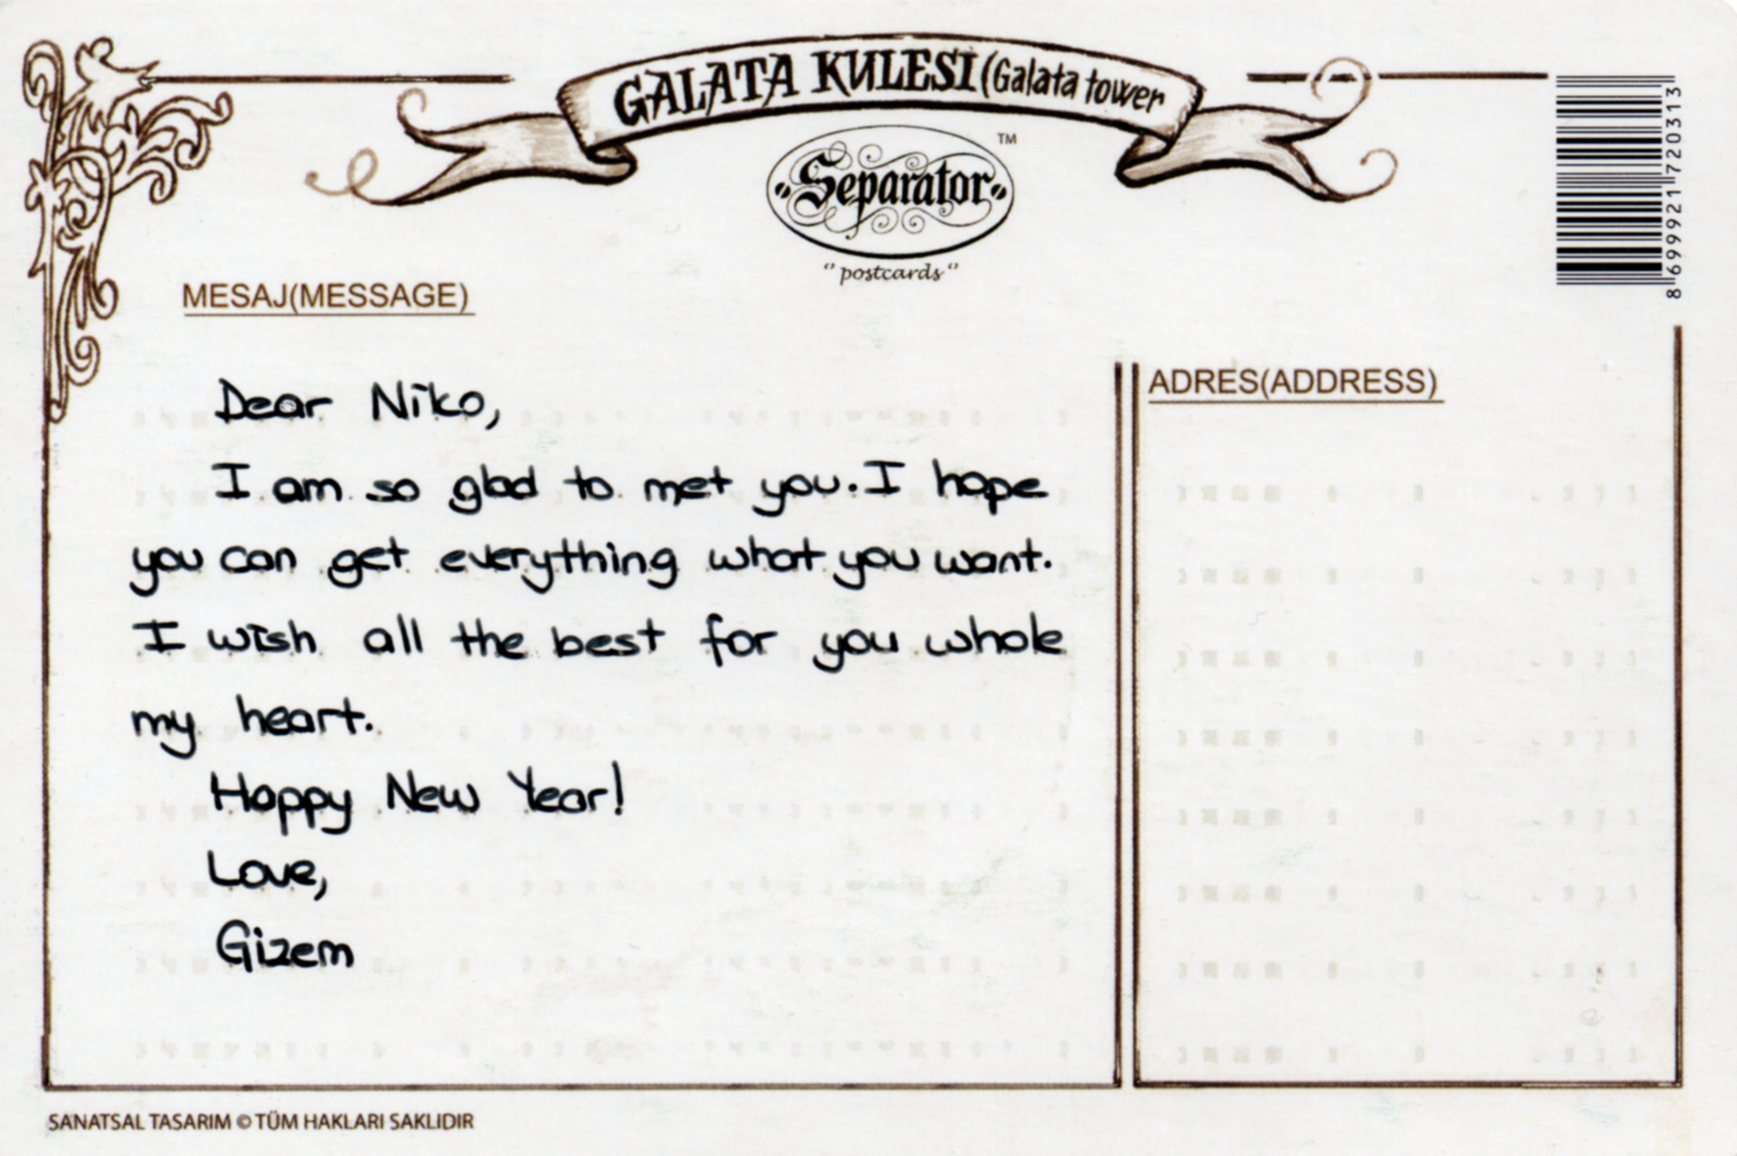 GALATA KULESI (Galata tower
Separator TM
"postcards"
8 699921 720313
MESAJ(MESSAGE)
ADRES(ADDRESS)
Dear Niko,
I am so glad to met you. I hope
you can get everything what you want.
I wish all the best for you whole
my heart.
Happy New Year!
Love,
Gizem
SANATSAL TASARIM © TÜM HAKLARI SAKLIDIR